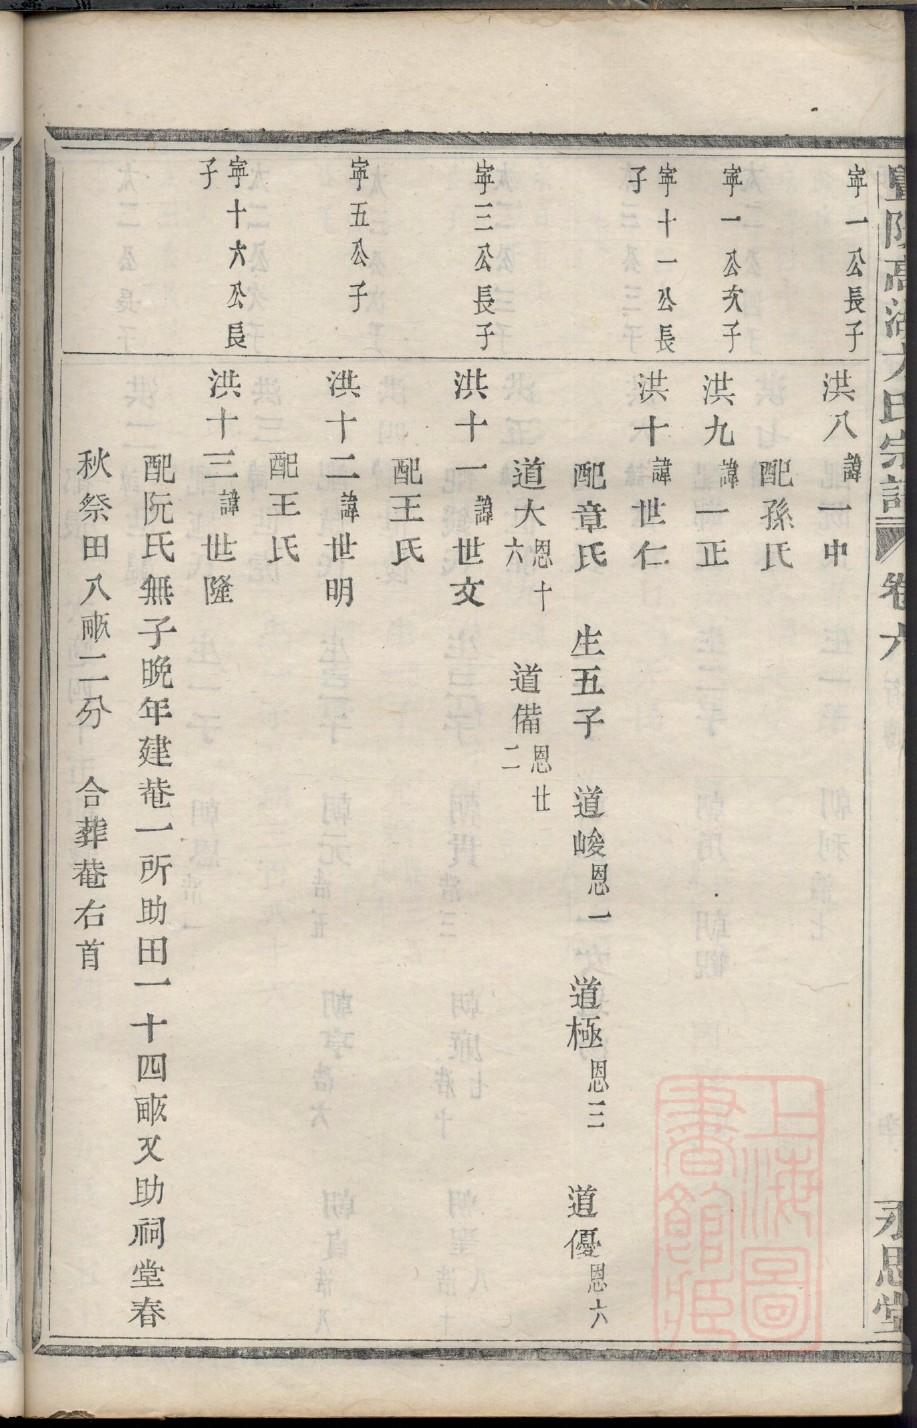 暨陽高湖方氏宗譜 卷六 永思堂
寜一公長子
洪八諱一中
配孫氏
寜一公次子
洪九諱一正
寜十一公長子
洪十諱世仁
配章氏 生五子 道峻恩一 道極恩三 道優恩六
道大恩十六 道備恩廿二
寜三公長子
洪十一諱世文
配王氏
寜五公子
洪十二諱世明
配王氏
寜十六公長子
洪十三諱世隆
配阮氏無子晩年建菴一所助田一十四畝又助祠堂春
秋祭田八畝二分 合葬菴右首
上海圖書館藏